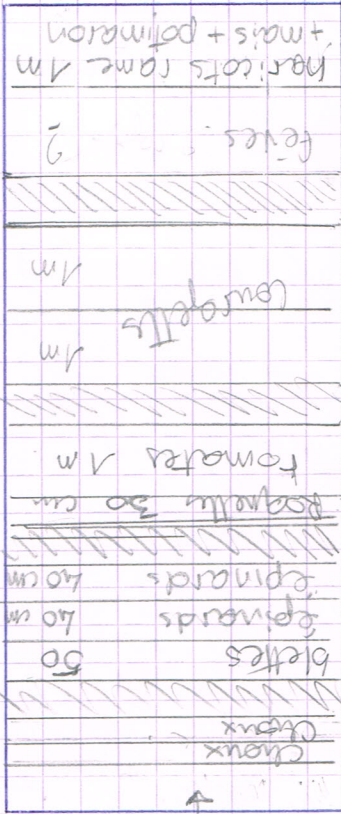 Choux
Choux
blettes 50
épinards 40 cm
épinards 40 cm
Roquette 30 cm
Tomates 1m
1m
Courgettes
1m
fèves 2
haricots rame 1m
+ maïs + potimaron